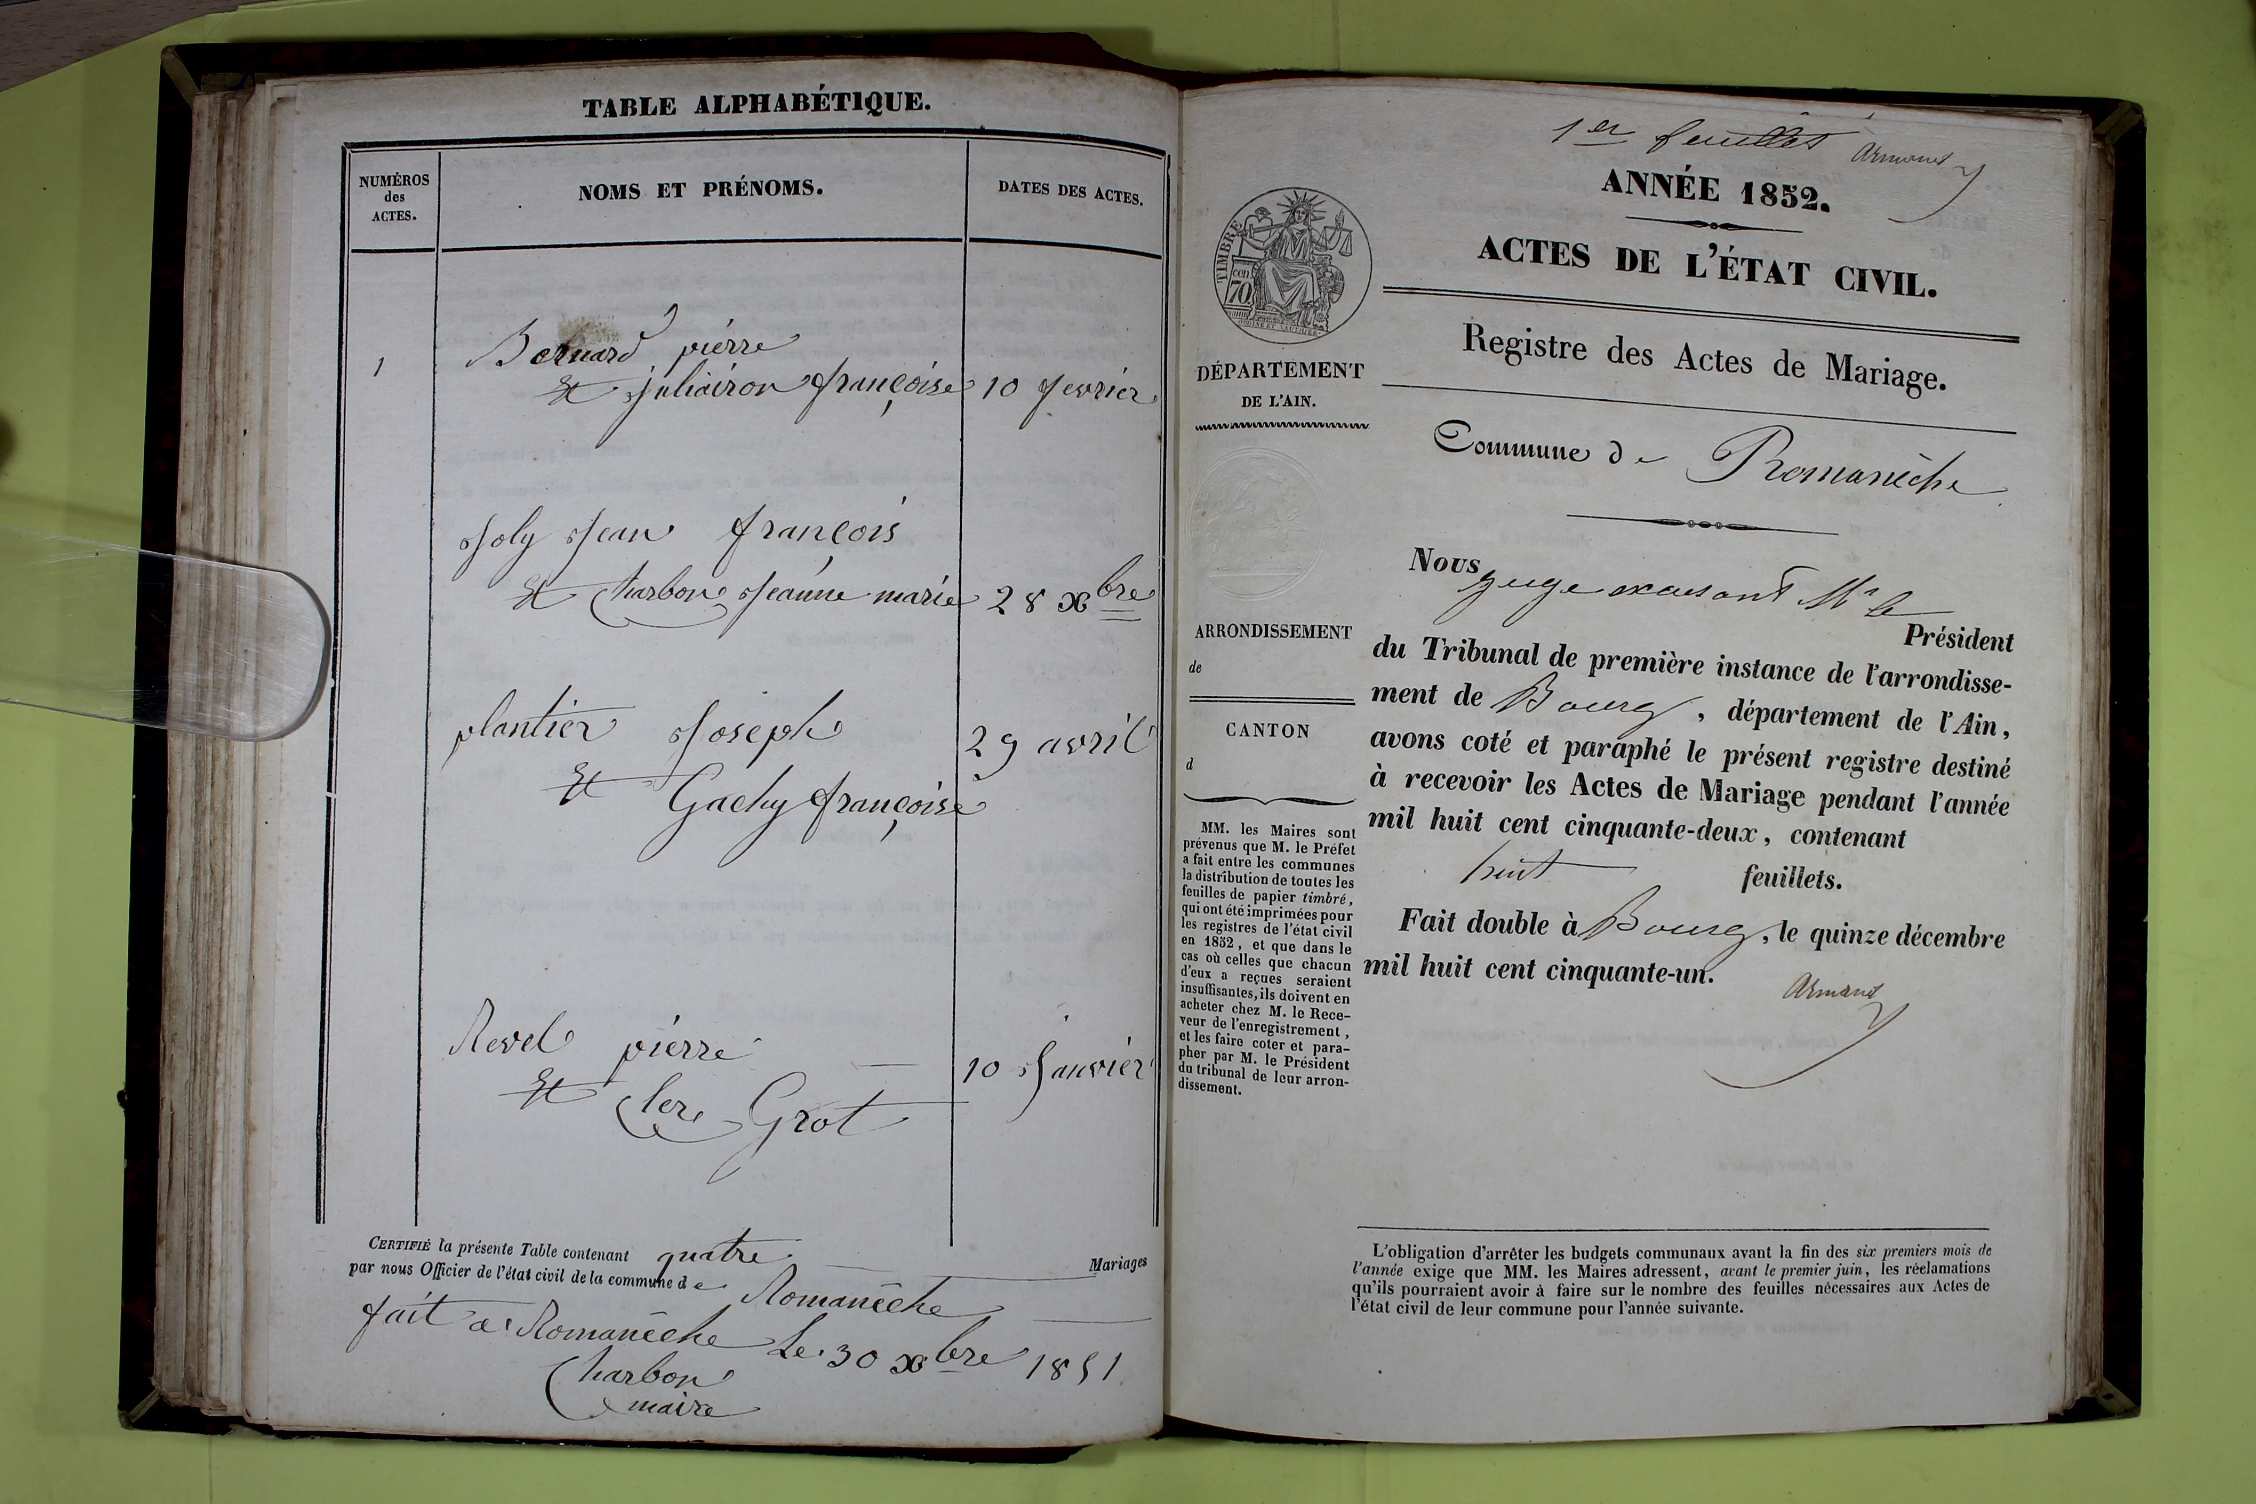 TABLE ALPHABÉTIQUE.
NUMÉROS
des
ACTES.
NOMS ET PRÉNOMS.
DATES DES ACTES.
1
Bernard pierre
Et juliairon françoise 10 fevrier
Joly Jean françois
Et Charbon Jeanne marie 28 xbre
plantier Joseph
29 avril
Et Gachy françoise
Revel pierre
10 Janvier
Et Grot
CERTIFIÉ la présente Table contenant quatre Mariages
par nous Officier de l'état civil de la commune de Romanèche
fait a Romanèche Le 30 xbre 1851
Charbon
maire
1er feuillet Armand
ANNÉE 1852.
ACTES DE L'ÉTAT CIVIL.
Registre des Actes de Mariage.
TIMBRE
70 cen
DÉPARTEMENT
DE L'AIN.
ARRONDISSEMENT
de
CANTON
d
MM. les Maires sont
prévenus que M. le Préfet
a fait entre les communes
la distribution de toutes les
feuilles de papier timbré,
qui ont été imprimées pour
les registres de l'état civil
en 1852, et que dans le
cas où celles que chacun
d'eux a reçues seraient
insuffisantes, ils doivent en
acheter chez M. le Rece-
veur de l'enregistrement,
et les faire coter et para-
pher par M. le Président
du tribunal de leur arron-
dissement.
Commune de Romanèche
Nous
juge Mr le
Président
du Tribunal de première instance de l'arrondisse-
ment de Bourg, département de l'Ain,
avons coté et paraphé le présent registre destiné
à recevoir les Actes de Mariage pendant l'année
mil huit cent cinquante-deux, contenant
huit feuillets.
Fait double à Bourg, le quinze décembre
mil huit cent cinquante-un.
Armand
L'obligation d'arrêter les budgets communaux avant la fin des six premiers mois de
l'année exige que MM. les Maires adressent, avant le premier juin, les réclamations
qu'ils pourraient avoir à faire sur le nombre des feuilles nécessaires aux Actes de
l'état civil de leur commune pour l'année suivante.